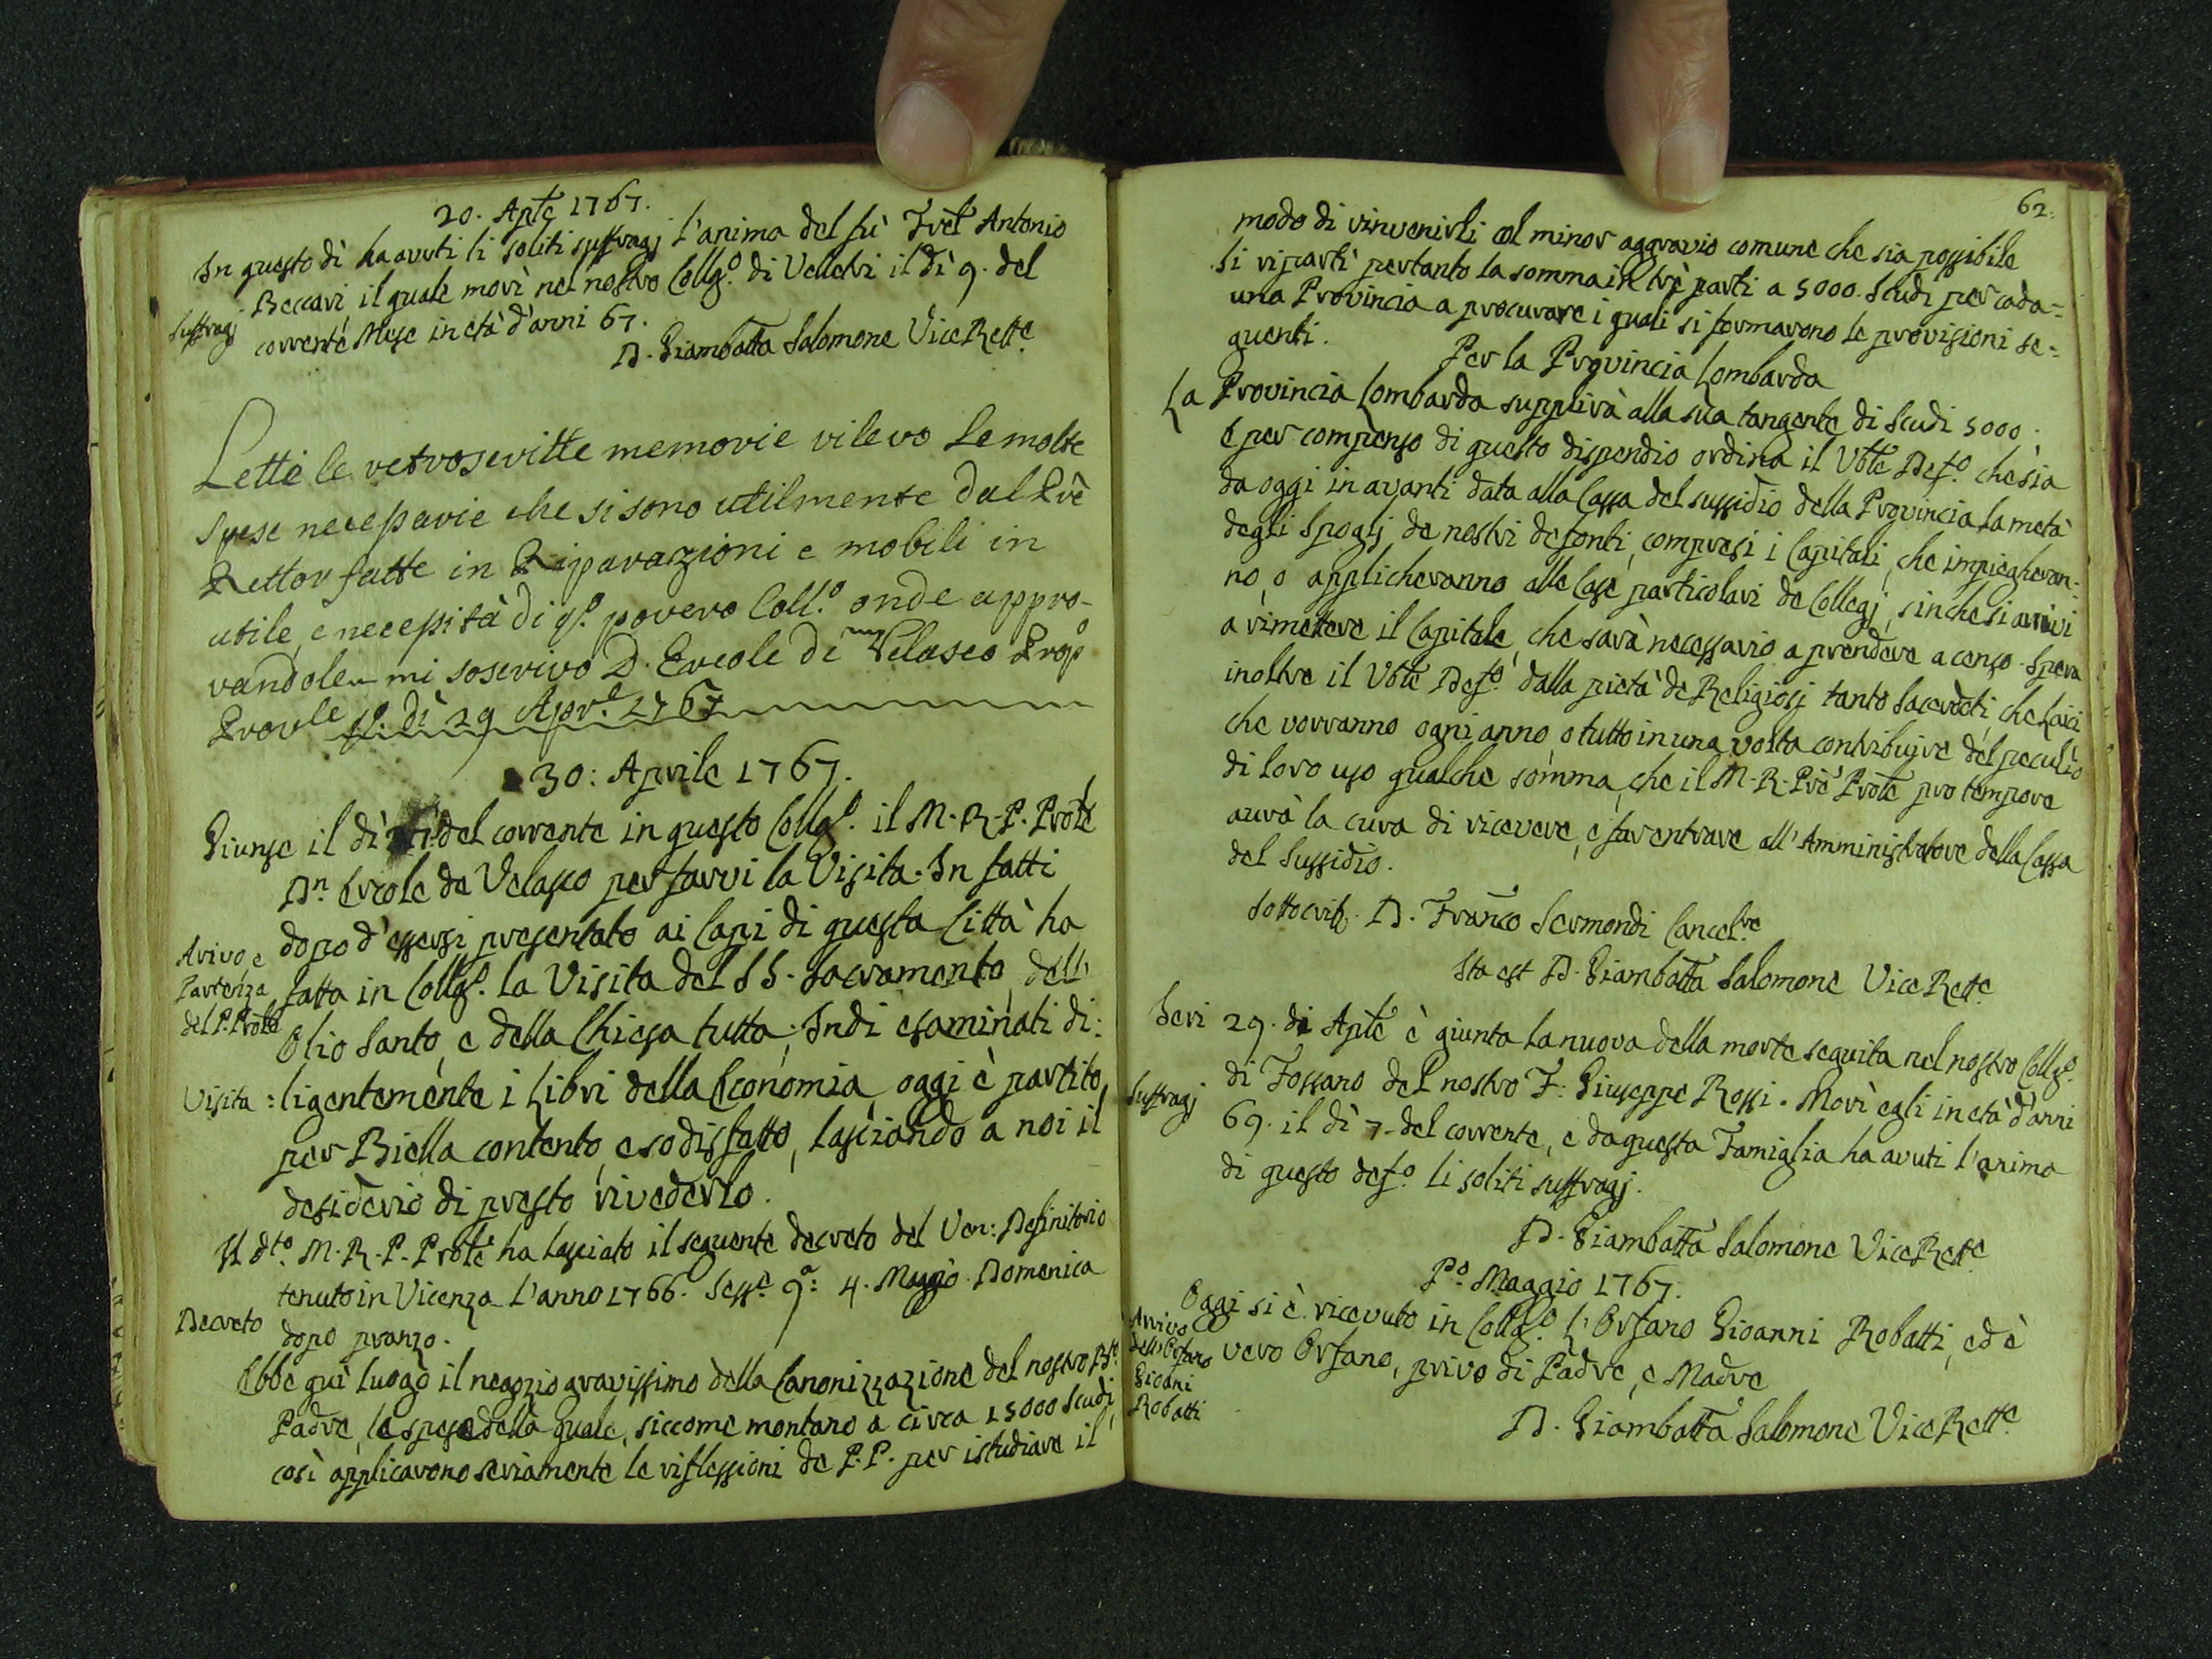 20. Aple 1767.
In questo dì ha avuti li soliti suffragj l'anima del fù Frel Antonio
Suffragj
Beccari il quale morì nel nostro Collg.o di Velletri il dì 9. del
corrente Mese in età d'anni 67.
D. Giambatta Salomone ViceRette
Lette le retroscritte memorie rilevo le molte
spese necessarie che si sono utilmente dal Prê
Rettor fatte in Riparazioni e mobili in
utile, e necessità di qo. povero Coll.o onde appro-
vandole mi soscrivo D. Ercole di Velasco Prop.o
Provle so. dì 29 Apr.e 1767
30: Aprile 1767.
Giunse il dì del corrente in questo Collg.o il M. R. P. Prõle
Dn. Ercole de Velasco per farvi la Visita. In fatti
Arivo e
Partenza
del P. Prõle
dopo d'essersi presentato ai Capi di questa Città ha
fatta in Collg.o la Visita del SS. Sacramento, dell'
Olio Santo, e della Chiesa tutta. Indi esaminati di:
Visita
:ligentemente i Libri della Economia oggi è partito
per Biella contento, e sodisfatto, lasciando a noi il
desiderio di presto rivederlo.
Il dto. M. R. P. Prõle ha lasciato il seguente decreto del Ven: Definitorio
tenuto in Vicenza l'anno 1766. Sesse 9a: 4. Maggio Domenica
Decreto
dopo pranzo.
Ebbe quì luogo il negozio gravissimo della Canonizzazione del nostro Bto.
Padre, le spese della quale, siccome montano a circa 15000 Scudi,
così applicarono seriamente le riflessioni de P.P. per istudiare il
62.
modo di rinvenirli col minor aggravio comune che sia possibile
Si ripartì pertanto la somma in trè parti a 5000. Scudi per cada=
una Provincia a procurare i quali si formarono le provisioni se=
guenti.
Per la Provincia Lombarda
La Provincia Lombarda supplirà alla sua tangente di Scudi 5000;
E per compenso di questo dispendio ordina il Vble Def.o che sia
da oggi in avanti data alla Cassa del sussidio della Provincia la metà
degli Spoglj de nostri defonti, compresi i Capitali, che impiegheran-
no, o applicheranno alle Case particolari de Collegj, sinche si arrivi
a rimettere il Capitale, che sarà necessario a prendere a censo. Spera
inoltre il Vble Def.o dalla pietà de Religiosi tanto Sacerdoti, che Laici
che vorranno ogni anno, o tutto in una volta contribuire del peculio
di loro uso qualche somma, che il M. R. Prê Prõle pro tempore
avrà la cura di ricevere, e far entrare all'Amministratore della Cassa
del Sussidio.
Sottoscritt. D. Franco Sermondi Cancel.re
Ita est D. Giambatta Salomone Vice Rette
Jeri 29. di Aple è giunta la nuova della morte seguita nel nostro Collg.o
Suffragj
di Fossano del nostro F: Giuseppe Rossi. Morì egli in età d'anni
69. il dì 7. del corrente, e da questa Famiglia ha avuti l'anima
di questo def.o li soliti suffragj.
D. Giambatta Salomone Vice Rette
P.o Maggio 1767.
Oggi si è ricevuto in Collg.o l'Orfano Gioanni Robatti, ed è
Arrivo
dell'Orfano
Gioani
Robatti
vero Orfano, privo di Padre, e Madre
D. Giambatta Salomone Vice Rette